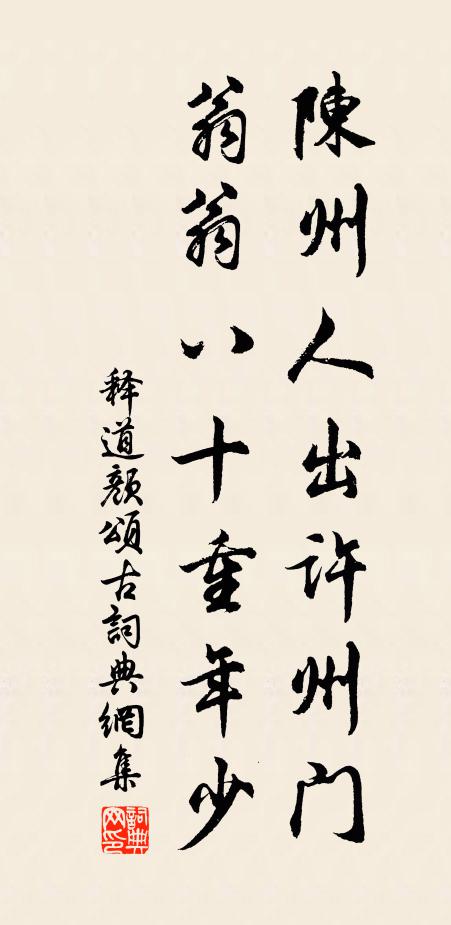 陳州人出許州門
翁翁八十重年少
释道颜頌古詞典網集
詞典网印